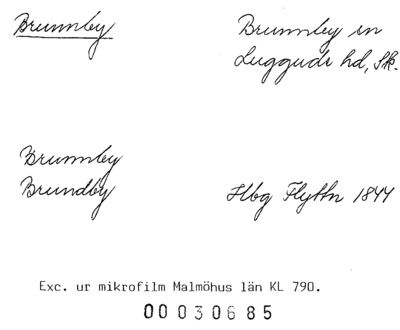 Brunnby
Brunnby sn
Luggude hd, Sk.
Brunnby
Brundby
Hbg Flyttn 1844
Exc. ur mikrofilm Malmöhus län KL 790.
00030685